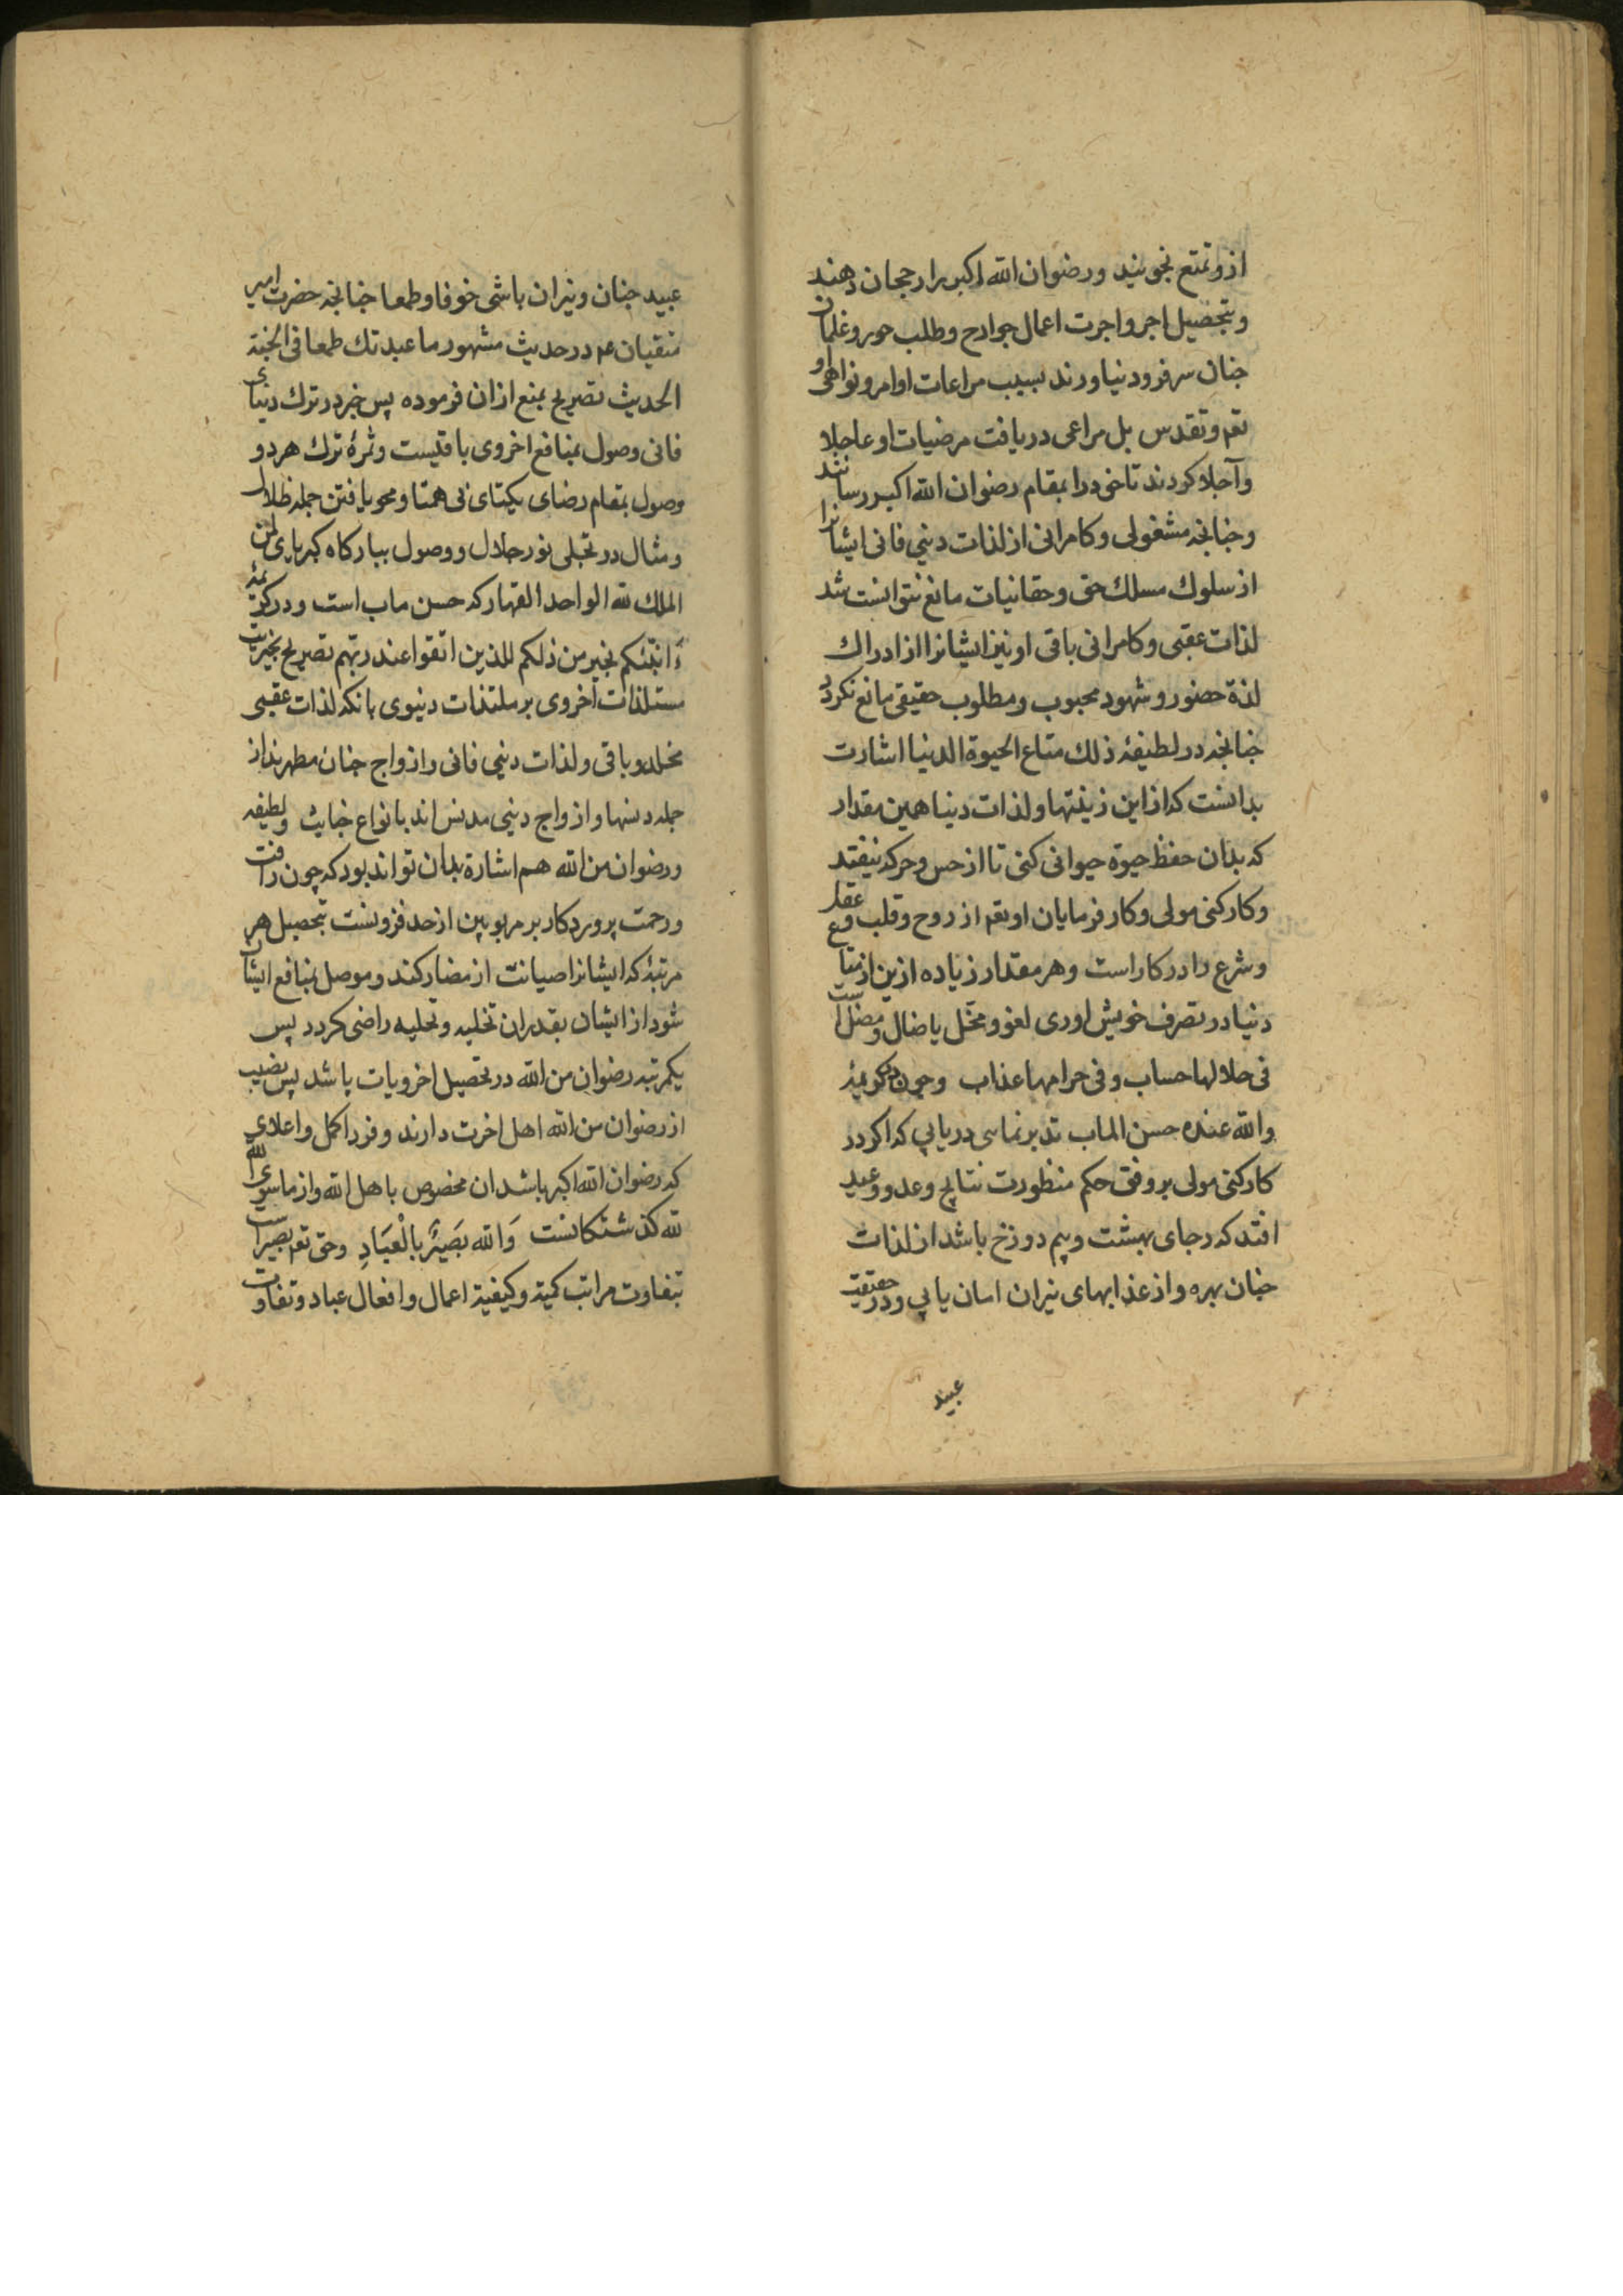 ازو تمتع نجویند ورضوان الله اکبر را رجحان دهند
وبتحصیل اجر واجرت اعمال جوارح وطلب حور وغلمان
جنان سر فرود نیاورند بسبب مراعات اوامر ونواهی او
تعم وتقدس بل مراعی دریافت مرضیات او عاجلا
وآجلا کردند تا خود را بمقام رضوان الله اکبر رسانند
وچنانچه مشغولی وکامرانی از لذات دینی فانی ایشانرا
از سلوک مسلک حق وحقانیات مانع نتوانست شد
لذات عقبی وکامرانی باقی او نیز ایشانرا از ادراک
لذة حضور وشهود محبوب ومطلوب حقیقی مانع نکردد
چنانچه در لطیفهٔ ذلک متاع الحیوة الدنیا اشارت
بدانست که از این زینتها ولذات دنیا همین مقدار
که بدان حفظ حیوة حیوانی کنی تا از حس وحرکه نیفتد
وکارکنی مولی وکار فرمایان او تعم از روح وقلب وعقل
وشرع را درکار است وهر مقدار زیاده ازین از متاع
دنیا در تصرف خویش اوری لغو ومخل یا ضال ومضل است
فی حلالها حساب وفی حرامها عذاب وچون در کریمهٔ
والله عنده حسن الماب تدبر نمای دریابی که اکر در
کارکنی مولی بر وفق حکم منظورت نتایج وعد ووعید
افتد که رجای بهشت وبیم دوزخ باشد از لذات
جنان بهره واز عذابهای نیران امان یابی ودر حقیقت
عبید
عبید جنان ونیران باشی خوفا وطمعا چنانچه حضرت امیر
متقیان عم در حدیث مشهور ما عبدتک طمعا فی الجنة
الحدیث تصریح بمنع ازان فرموده پس خیر در ترک دنیای
فانی وصول بمنافع اخروی باقیست وثمرهٔ ترک هر دو
وصول بمقام رضای یکتای بی همتا ومحو یافتن جمله ظلال
ومثال در تجلی نور جلال ووصول ببارکاه کبریای لمن
الملک لله الواحد القهار که حسن ماب است ودر کریمهٔ
ءَانبئکم بخیر من ذلکم للذین اتقوا عند ربهم تصریح بخیریت
مستلذات اخروی بر ملتذات دنیوی بانکه لذات عقبی
مخلد وباقی ولذات دینی فانی وازواج جنان مطهرند از
جمله دنسها وازواج دینی مدنس اند بانواع خبایث ولطیفه
ورضوان من الله هم اشاره بدان تواند بود که چون رافت
ورحمت پروردکار بر مربوبین از حد فزونست بتحصیل هر
مرتبهٔ که ایشانرا صیانت از مضار کند وموصل بمنافع ایشان
شود از ایشان بقدر ان تخلیه وتحلیه راضی کردد پس
یکمرتبه رضوان من الله در تحصیل اخرویات باشد پس نصیب
از رضوان من الله اهل اخرت دارند وفرد اکمل واعلای
که رضوان الله اکبر باشد ان مخصوص باهل الله واز ماسوی الله
لله کذشتکانست وَالله بَصیرٌ بِالْعِبَادِ وحق تعم بصیر است
بتفاوت مراتب کمیة وکیفیة اعمال وافعال عباد وتفاوت